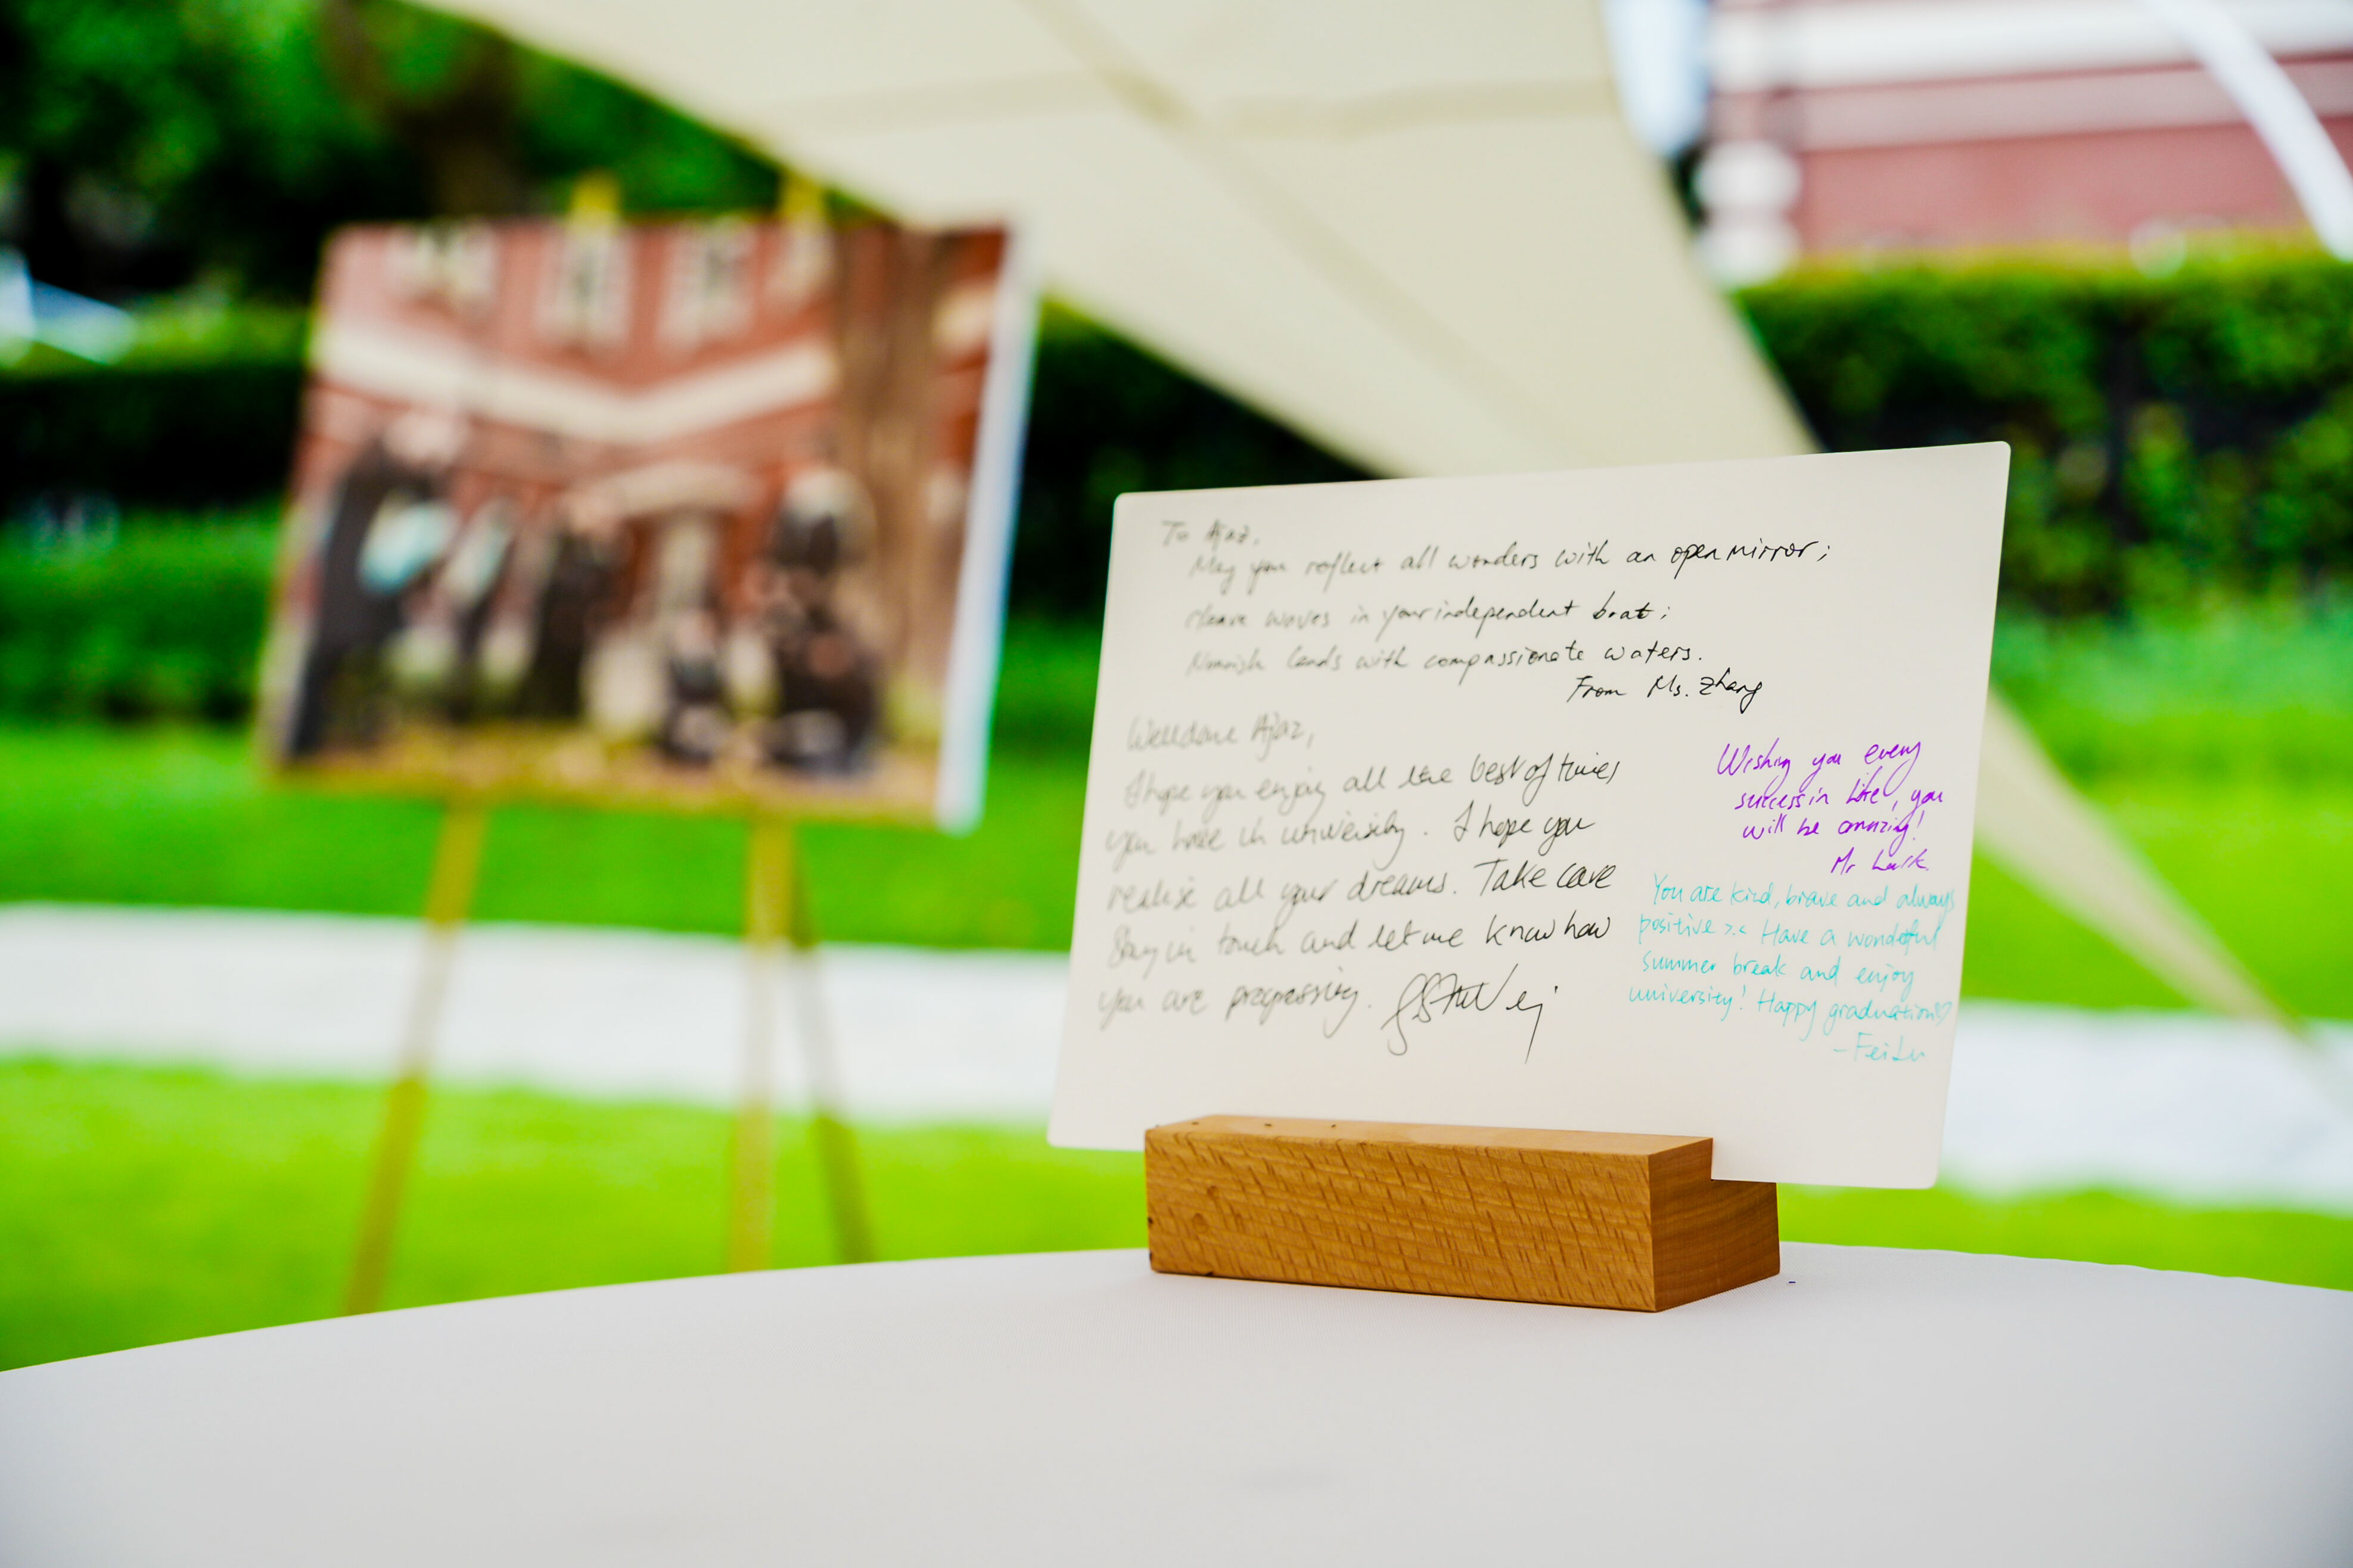 To Ajaz,
May you reflect all wonders with an open mirror;
waves in your independent boat;
Nourish lands with compassionate waters.
From Ms. Zhang
Welldone Ajaz,
I hope you enjoy all the best of times
you have in university. I hope you
realise all your dreams. Take care
Stay in touch and let me know how
you are progressing.
Wishing you every
success in life, you
will be amazing!
Mr
You are kind, brave and always
positive >.< Have a wonderful
summer break and enjoy
university! Happy graduation♡